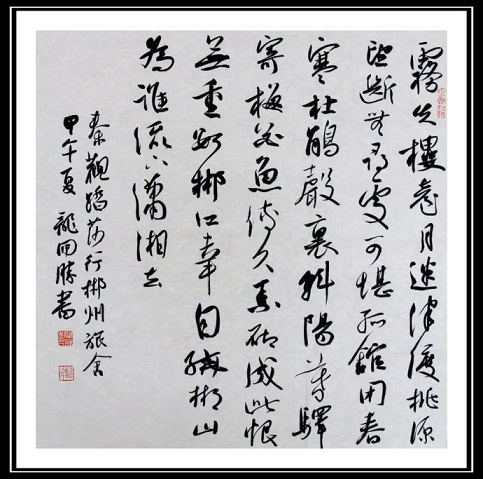 霧失樓臺月迷津渡桃源
望斷無尋處可堪孤館閉春
寒杜鵑聲裏斜陽暮驛
寄梅花魚傳尺素砌成此恨
無重數郴江幸自繞郴山
為誰流下瀟湘去
秦觀踏莎行郴州旅舍
甲午夏龍回勝書